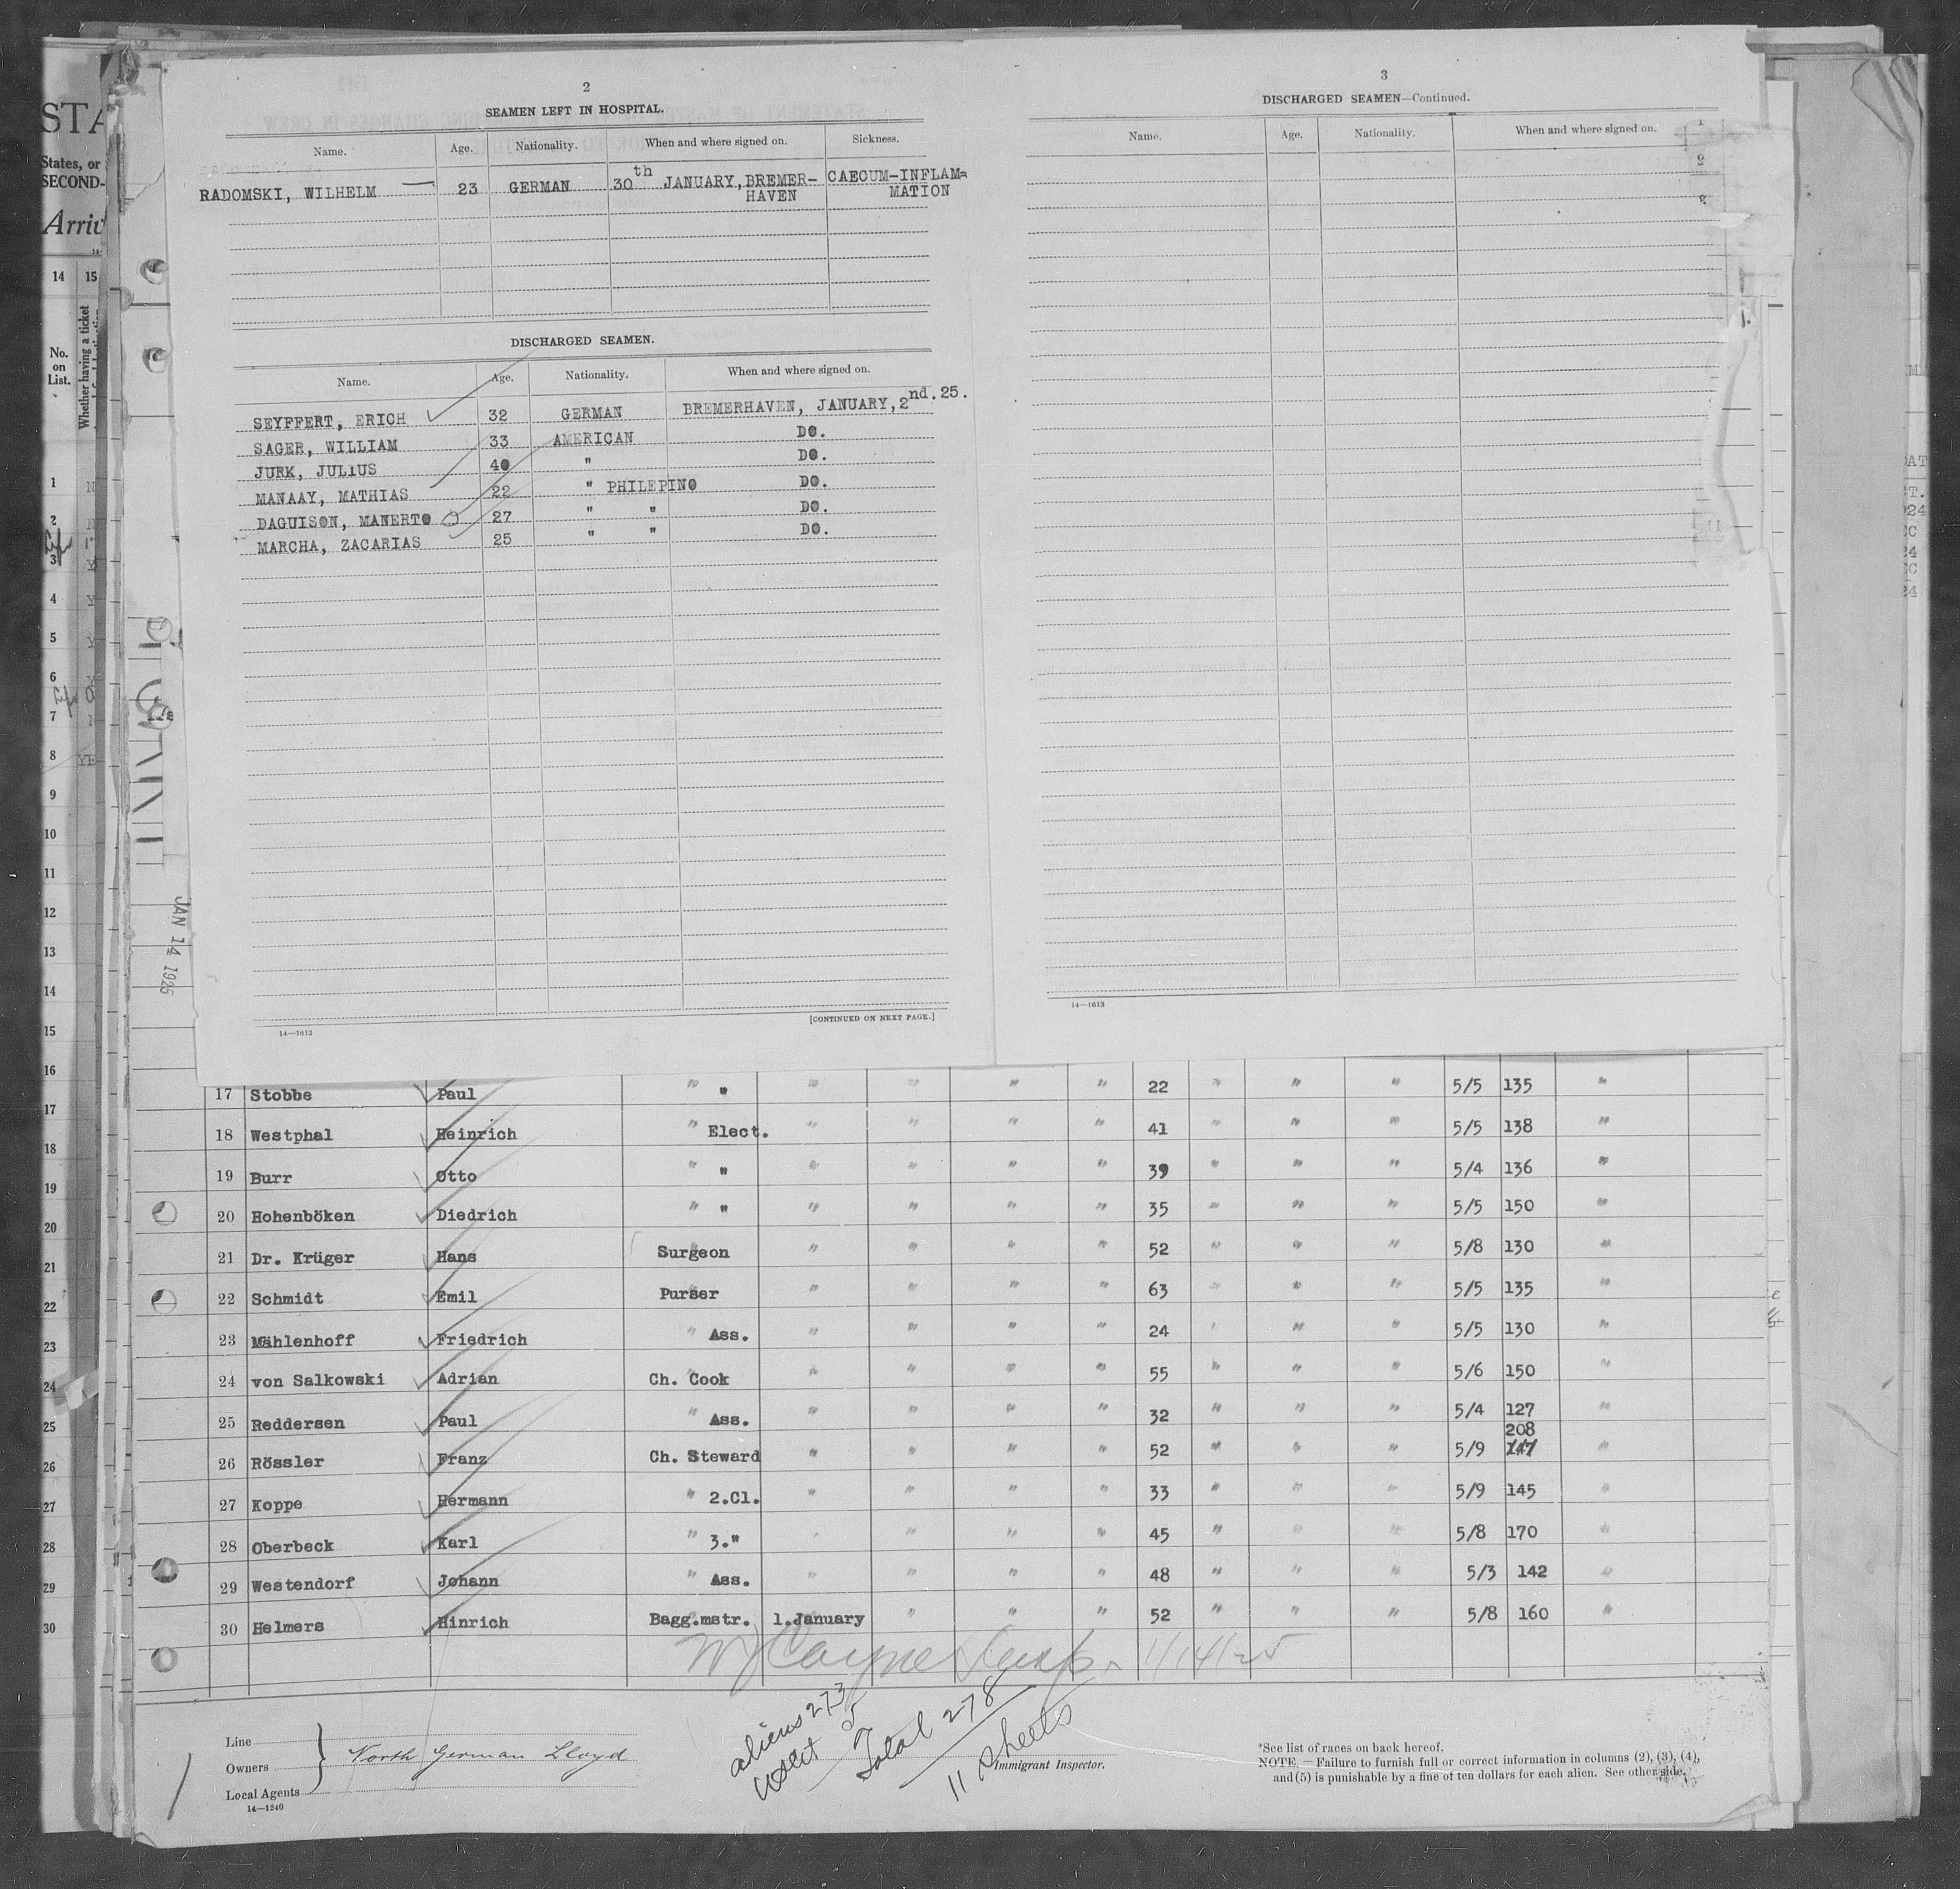 2
SEAMEN LEFT IN HOSPITAL.
Name. Age. Nationality. When and where signed on. Sickness.
RADOMSKI, WILHELM 23 GERMAN 30th JANUARY, BREMER- CAECUM-INFLAM=
HAVEN MATION
DISCHARGED SEAMEN.
Name. Age. Nationality. When and where signed on.
SEYFFERT, ERICH 32 GERMAN BREMERHAVEN, JANUARY, 2nd. 25.
SAGER, WILLIAM 33 AMERICAN DO.
JURK, JULIUS 40 " DO.
MANAAY, MATHIAS 22 " PHILEPINO DO.
DAGUISON, MANERTO 27 " " DO.
MARCHA, ZACARIAS 25 " " DO.
14—1613
[CONTINUED ON NEXT PAGE.]
3
DISCHARGED SEAMEN—Continued.
Name. Age. Nationality. When and where signed on.
14—1613
STA
States, or
SECOND-
Arriv
14 15
No.
on
List.
Whether having a ticket
1
2
3
4
5
6
7
8
9
10
11
12
13
14
15
16
17
18
19
20
21
22
23
24
25
26
27
28
29
30
JAN 14 1925
17 Stobbe Paul " " " " " " 22 " " " 5/5 135 "
18 Westphal Heinrich " Elect. " " " " 41 " " " 5/5 138 "
19 Burr Otto " " " " " " 39 " " " 5/4 136 "
20 Hohenböken Diedrich " " " " " " 35 " " " 5/5 150 "
21 Dr. Krüger Hans Surgeon " " " " 52 " " " 5/8 130 "
22 Schmidt Emil Purser " " " " 63 " " " 5/5 135 "
23 Mählenhoff Friedrich " Ass. " " " " 24 " " " 5/5 130 "
24 von Salkowski Adrian Ch. Cook " " " " 55 " " " 5/6 150 "
25 Reddersen Paul " Ass. " " " " 32 " " " 5/4 127 "
208
26 Rössler Franz Ch. Steward " " " " 52 " " " 5/9 147 "
27 Koppe Hermann " 2.Cl. " " " " 33 " " " 5/9 145 "
28 Oberbeck Karl " 3." " " " " 45 " " " 5/8 170 "
29 Westendorf Johann " Ass. " " " " 48 " " " 5/3 142 "
30 Helmers Hinrich Bagg.mstr. 1.January " " " 52 " " " 5/8 160 "
1/14/25
aliens 273
5
Total 278
11 sheets
Line
Owners North German Lloyd
Local Agents
14—1240
Immigrant Inspector.
*See list of races on back hereof.
NOTE.—Failure to furnish full or correct information in columns (2), (3), (4),
and (5) is punishable by a fine of ten dollars for each alien. See other side.